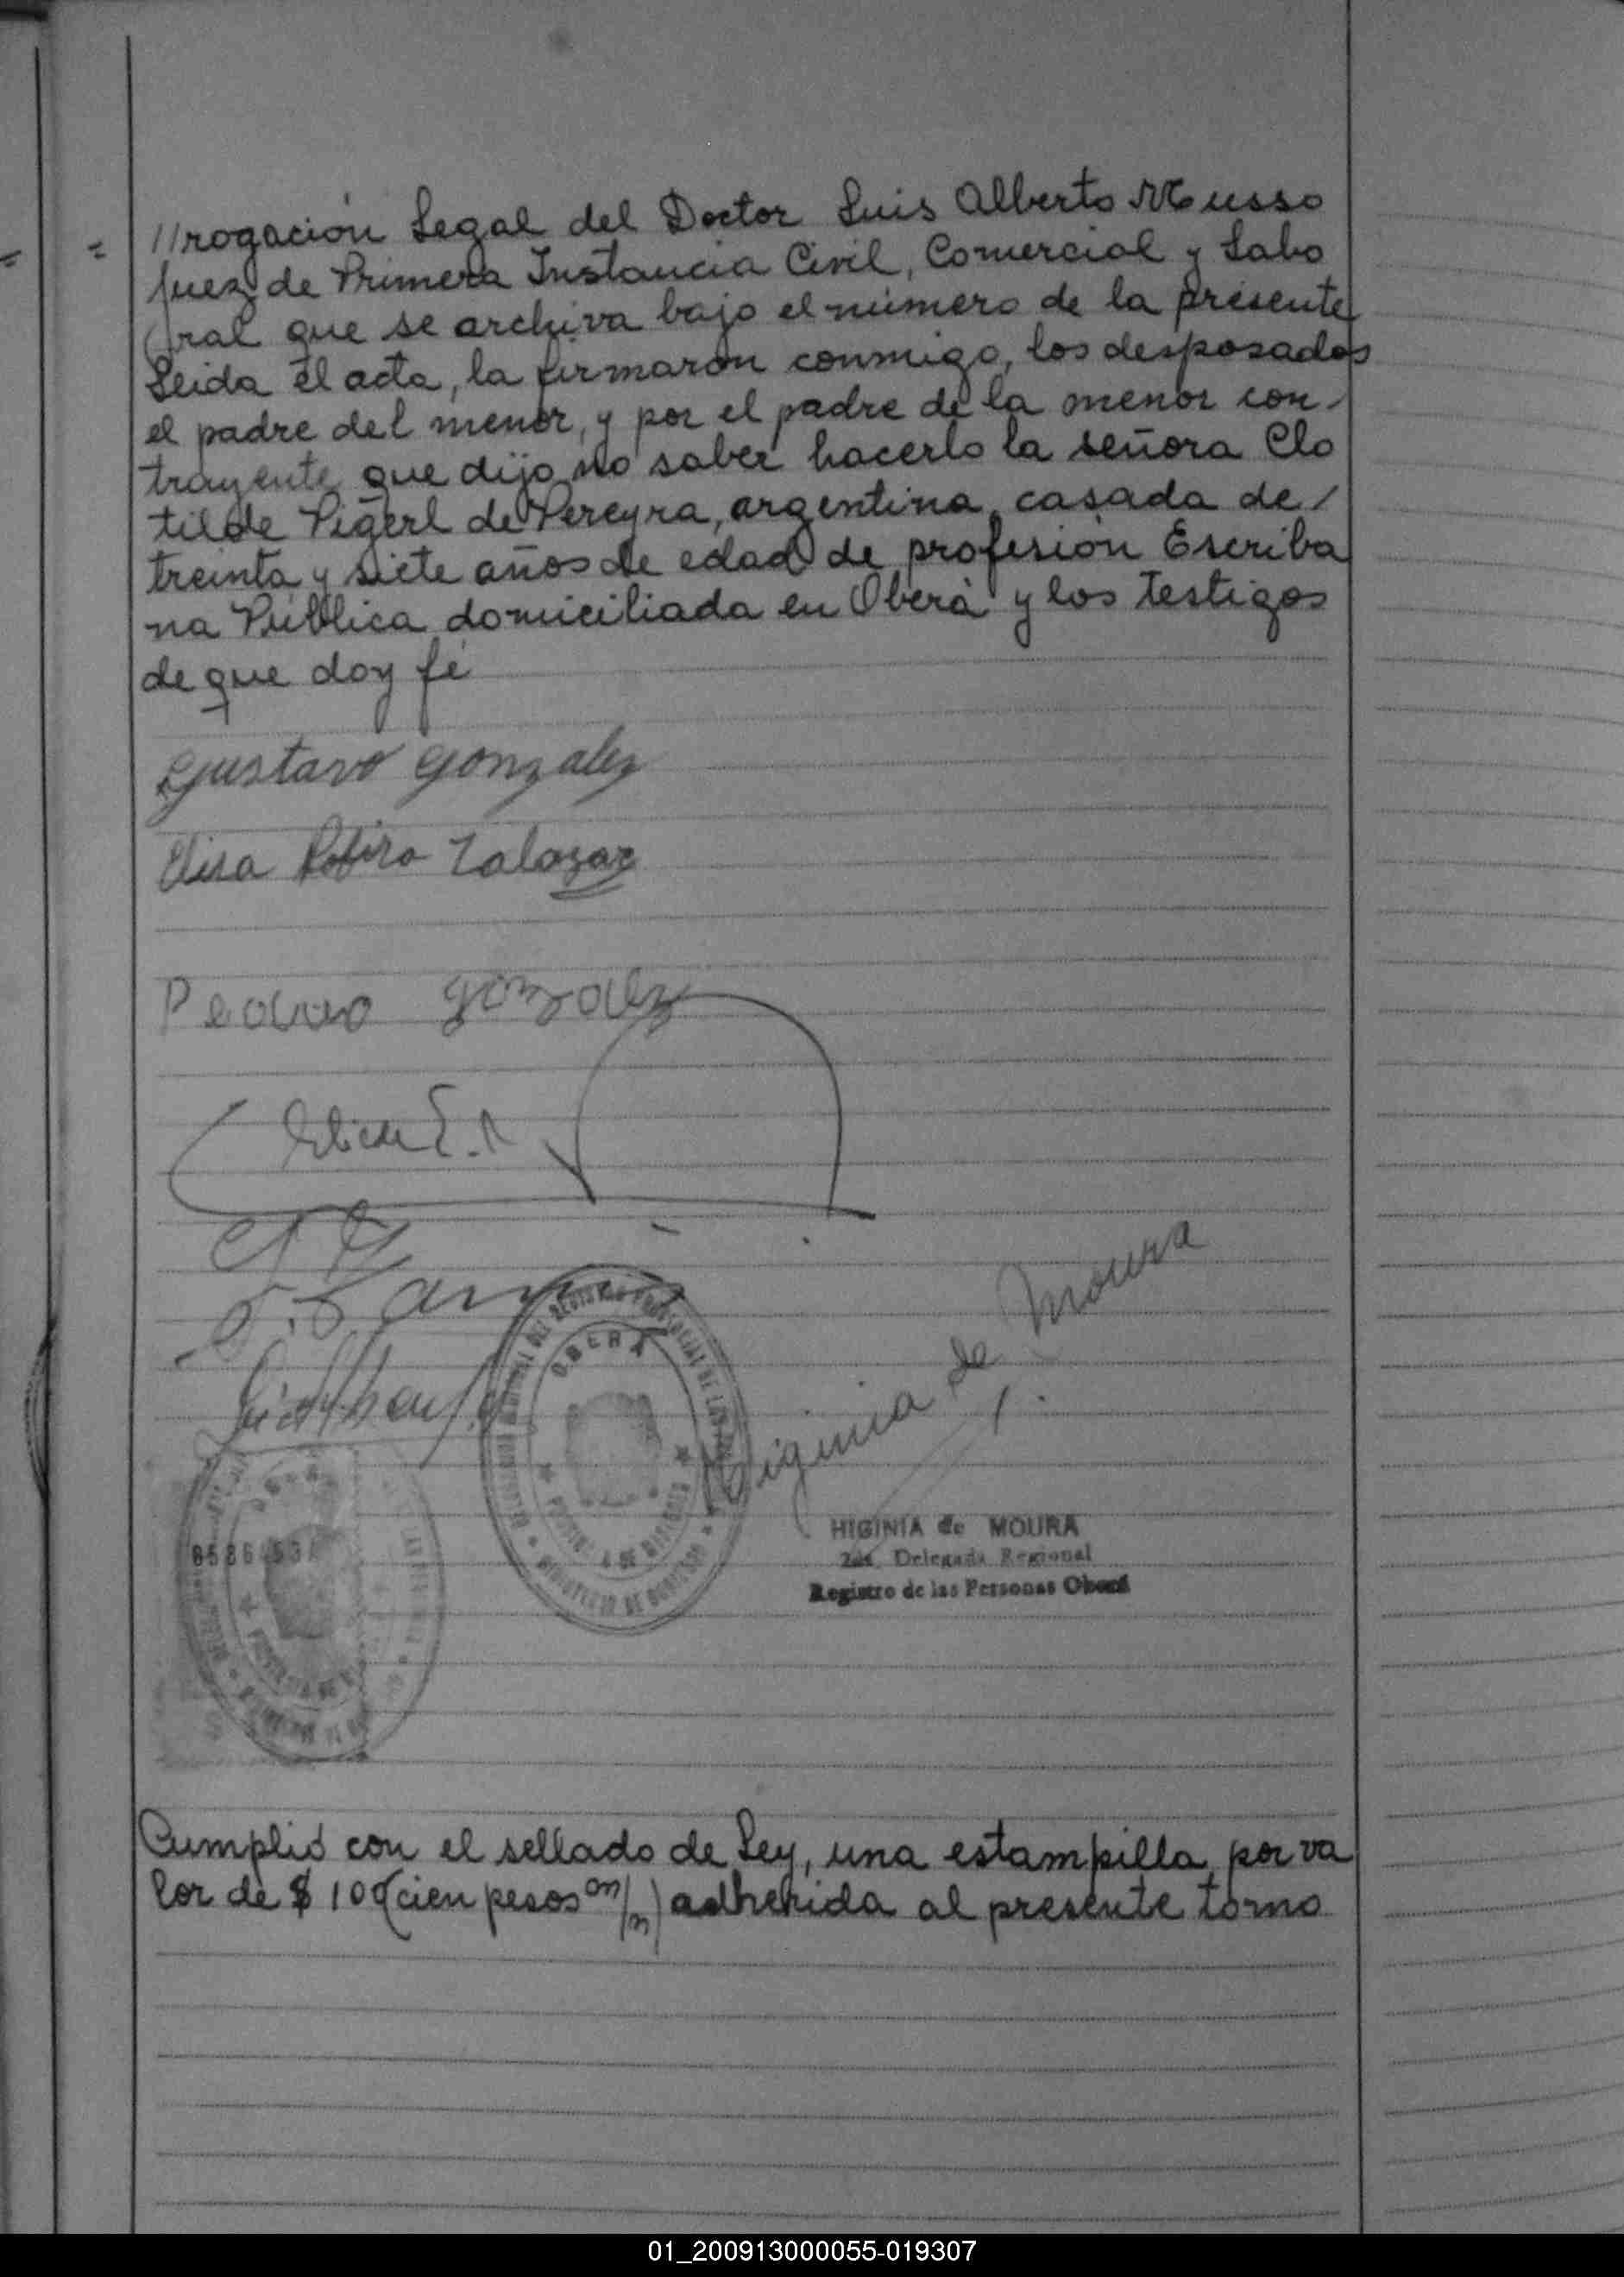 //rogación Legal del Doctor Luis Alberto Musso
Juez de Primera Instancia Civil, Comercial y Labo
ral que se archiva bajo el número de la presente
Leida el acta, la firmaron conmigo, los desposados
el padre del menor, y por el padre de la menor con-
trayente que dijo no saber hacerlo la señora Clo
tilde Pigerl de Pereyra, argentina, casada de/
treinta y siete años de edad de profesión Escriba
na Pública domiciliada en Oberá y los testigos
de que doy fé
Gustavo Gonzalez
Elisa Zalazar
Pedro Gonzalez
Higinia de Moura
OBERA
HIGINIA de MOURA
2da. Delegada Regional
Registro de las Personas Oberá
Cumplió con el sellado de Ley, una estampilla por va
lor de $ 100 (cien pesos m/n) adherida al presente tomo
01_200913000055-019307